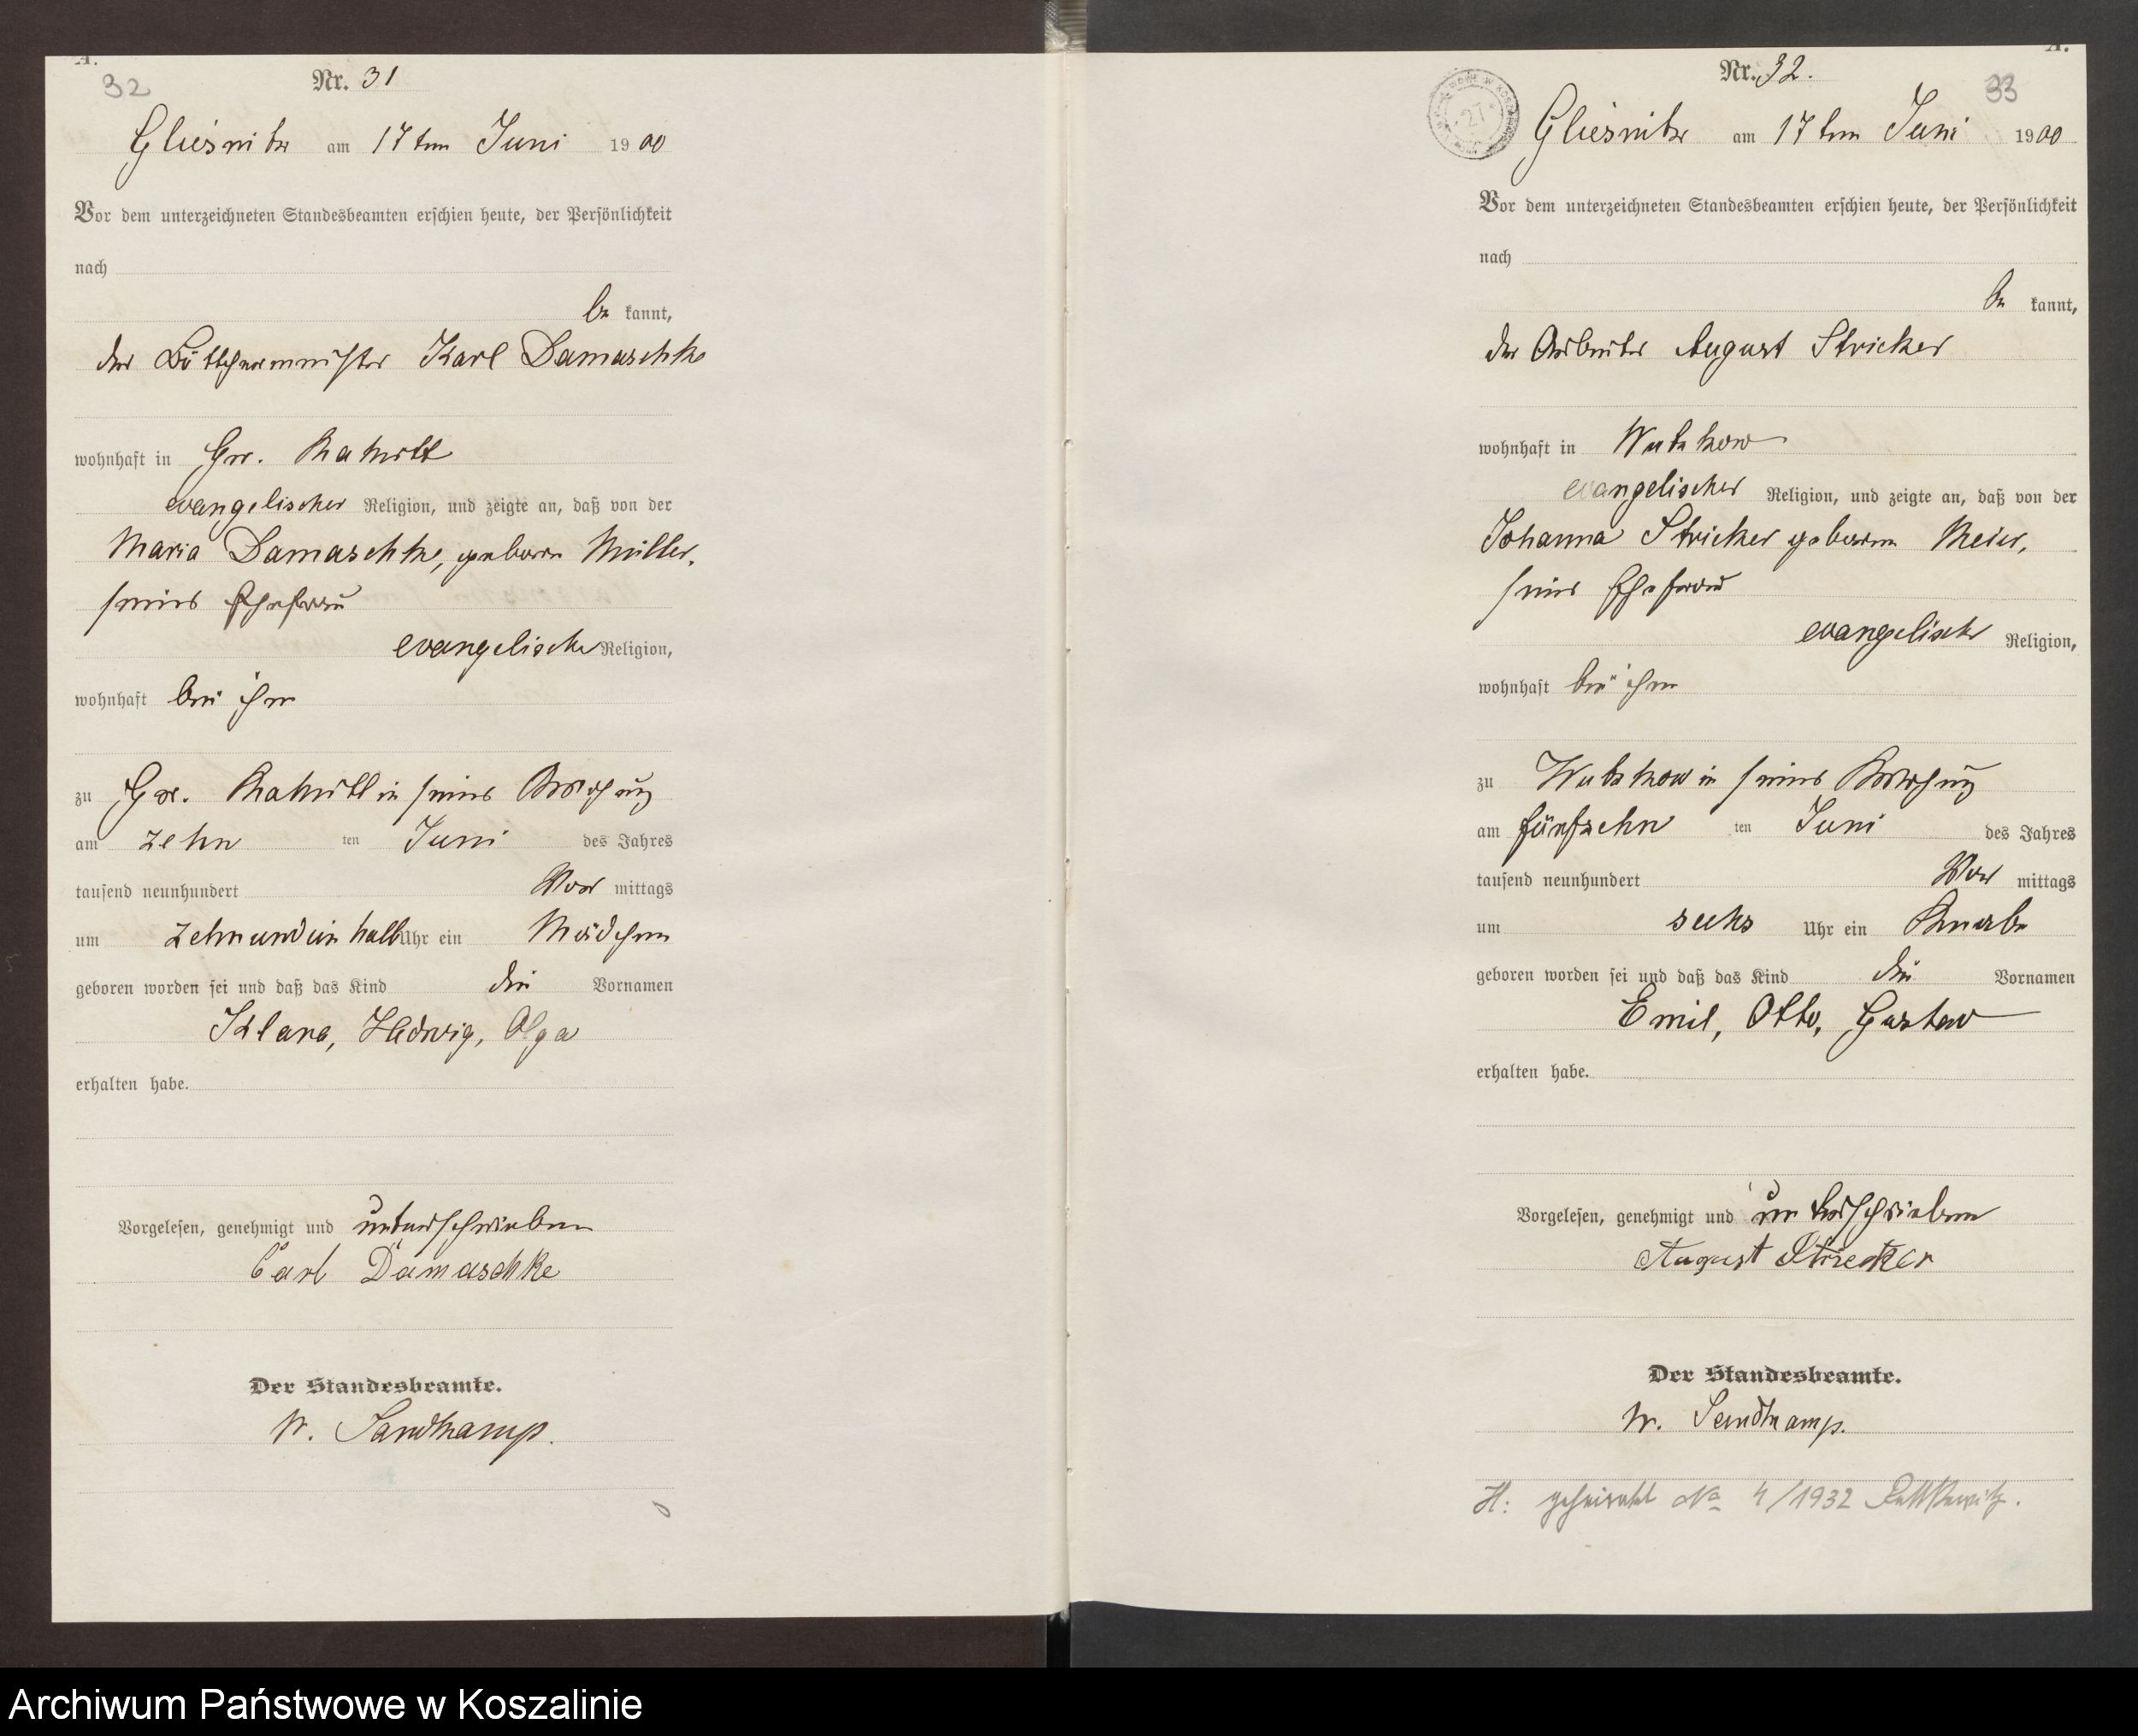 A.
32
Nr. 31
Gliesnitz am 17ten Juni 1900
Vor dem unterzeichneten Standesbeamten erschien heute, der Persönlichkeit
nach
be kannt,
der Böttchermeister Karl Damaschke
wohnhaft in Gr. Rakitt
evangelischer Religion, und zeigte an, daß von der
Maria Damaschke, geboren Müller,
seiner Ehefrau
evangelischer Religion,
wohnhaft bei ihm
zu Gr. Rakitt in seiner Wohnung
am zehn ten Juni des Jahres
tausend neunhundert Vor mittags
um zehnundein halb Uhr ein Mädchen
geboren worden sei und daß das Kind die Vornamen
Klara, Hedwig, Olga
erhalten habe.
Vorgelesen, genehmigt und unterschrieben
Carl Damaschke
Der Standesbeamte.
W. Sandkamp.
A.
Nr. 32.
33
27
Gliesnitz am 17ten Juni 1900
Vor dem unterzeichneten Standesbeamten erschien heute, der Persönlichkeit
nach
be kannt,
der Arbeiter August Stricker
wohnhaft in Wutzkow
evangelischer Religion, und zeigte an, daß von der
Johanna Stricker geboren Meier,
seiner Ehefrau
evangelischer Religion,
wohnhaft bei ihm
zu Wutzkow in seiner Wohnung
am fünfzehn ten Juni des Jahres
tausend neunhundert Vor mittags
um sechs Uhr ein Knabe
geboren worden sei und daß das Kind die Vornamen
Emil, Otto, Gustav
erhalten habe.
Vorgelesen, genehmigt und unterschrieben
August Stricker
Der Standesbeamte.
W. Sandkamp.
H: geheiratet No 4/1932
Archiwum Państwowe w Koszalinie